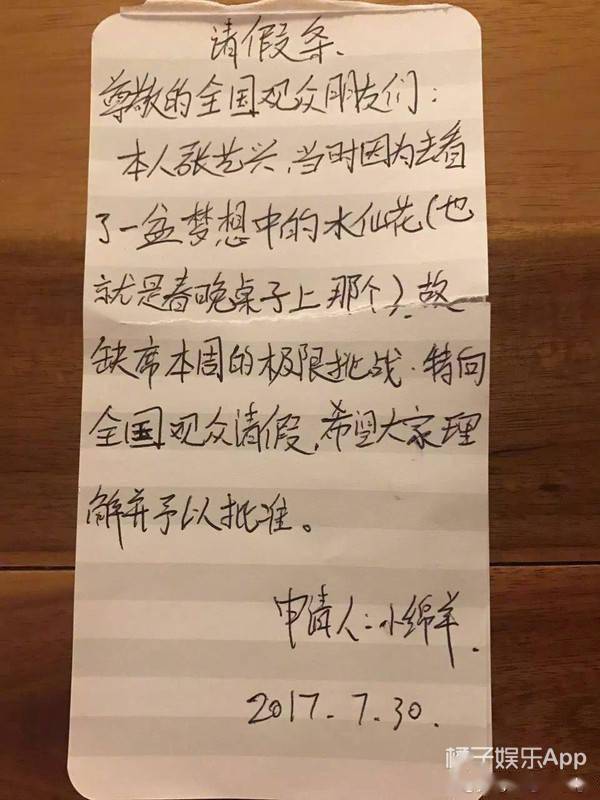 请假条.
尊敬的全国观众朋友们:
本人张艺兴,当时因为去看
了一盆梦想中的水仙花(也
就是春晚桌子上那个),故
缺席本周的极限挑战.特向
全国观众请假,希望大家理
解并予以批准。
申请人:小绵羊.
2017.7.30.
橘子娱乐App